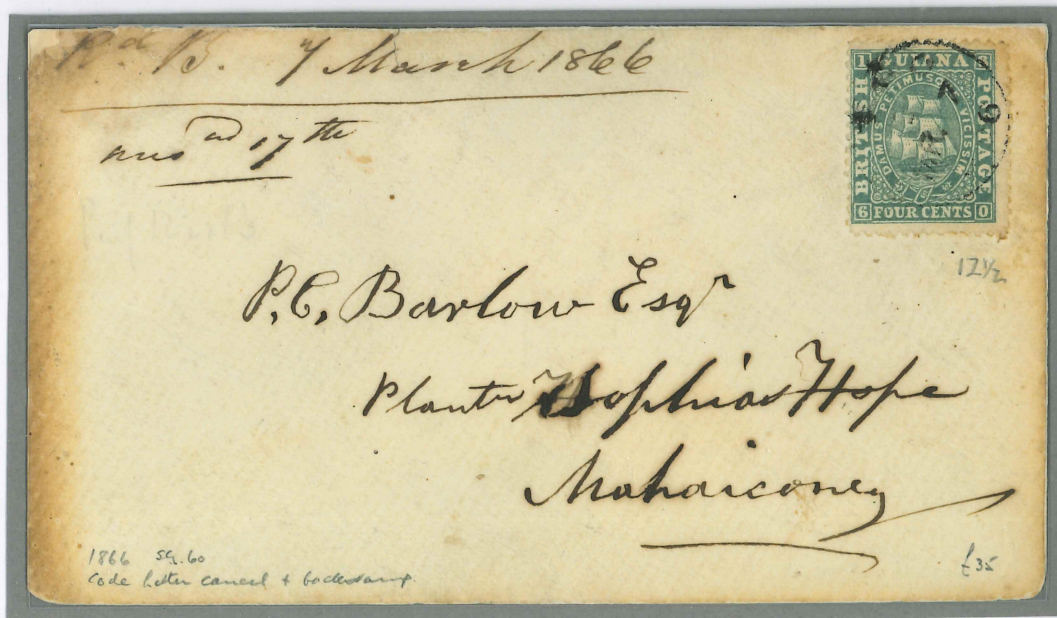 Rd B. 7 March 1866
ansd 17th
BRITISH
GUIANA
POSTAGE
DAMUS PETIMUSQUE VICISSIM
1 8
6 FOUR CENTS 0
12½
P. C. Barlow Esqr
Plantn Sophias Hope
Mahaicony
1866 SG.60
Code letter cancel + backstamp.
£35